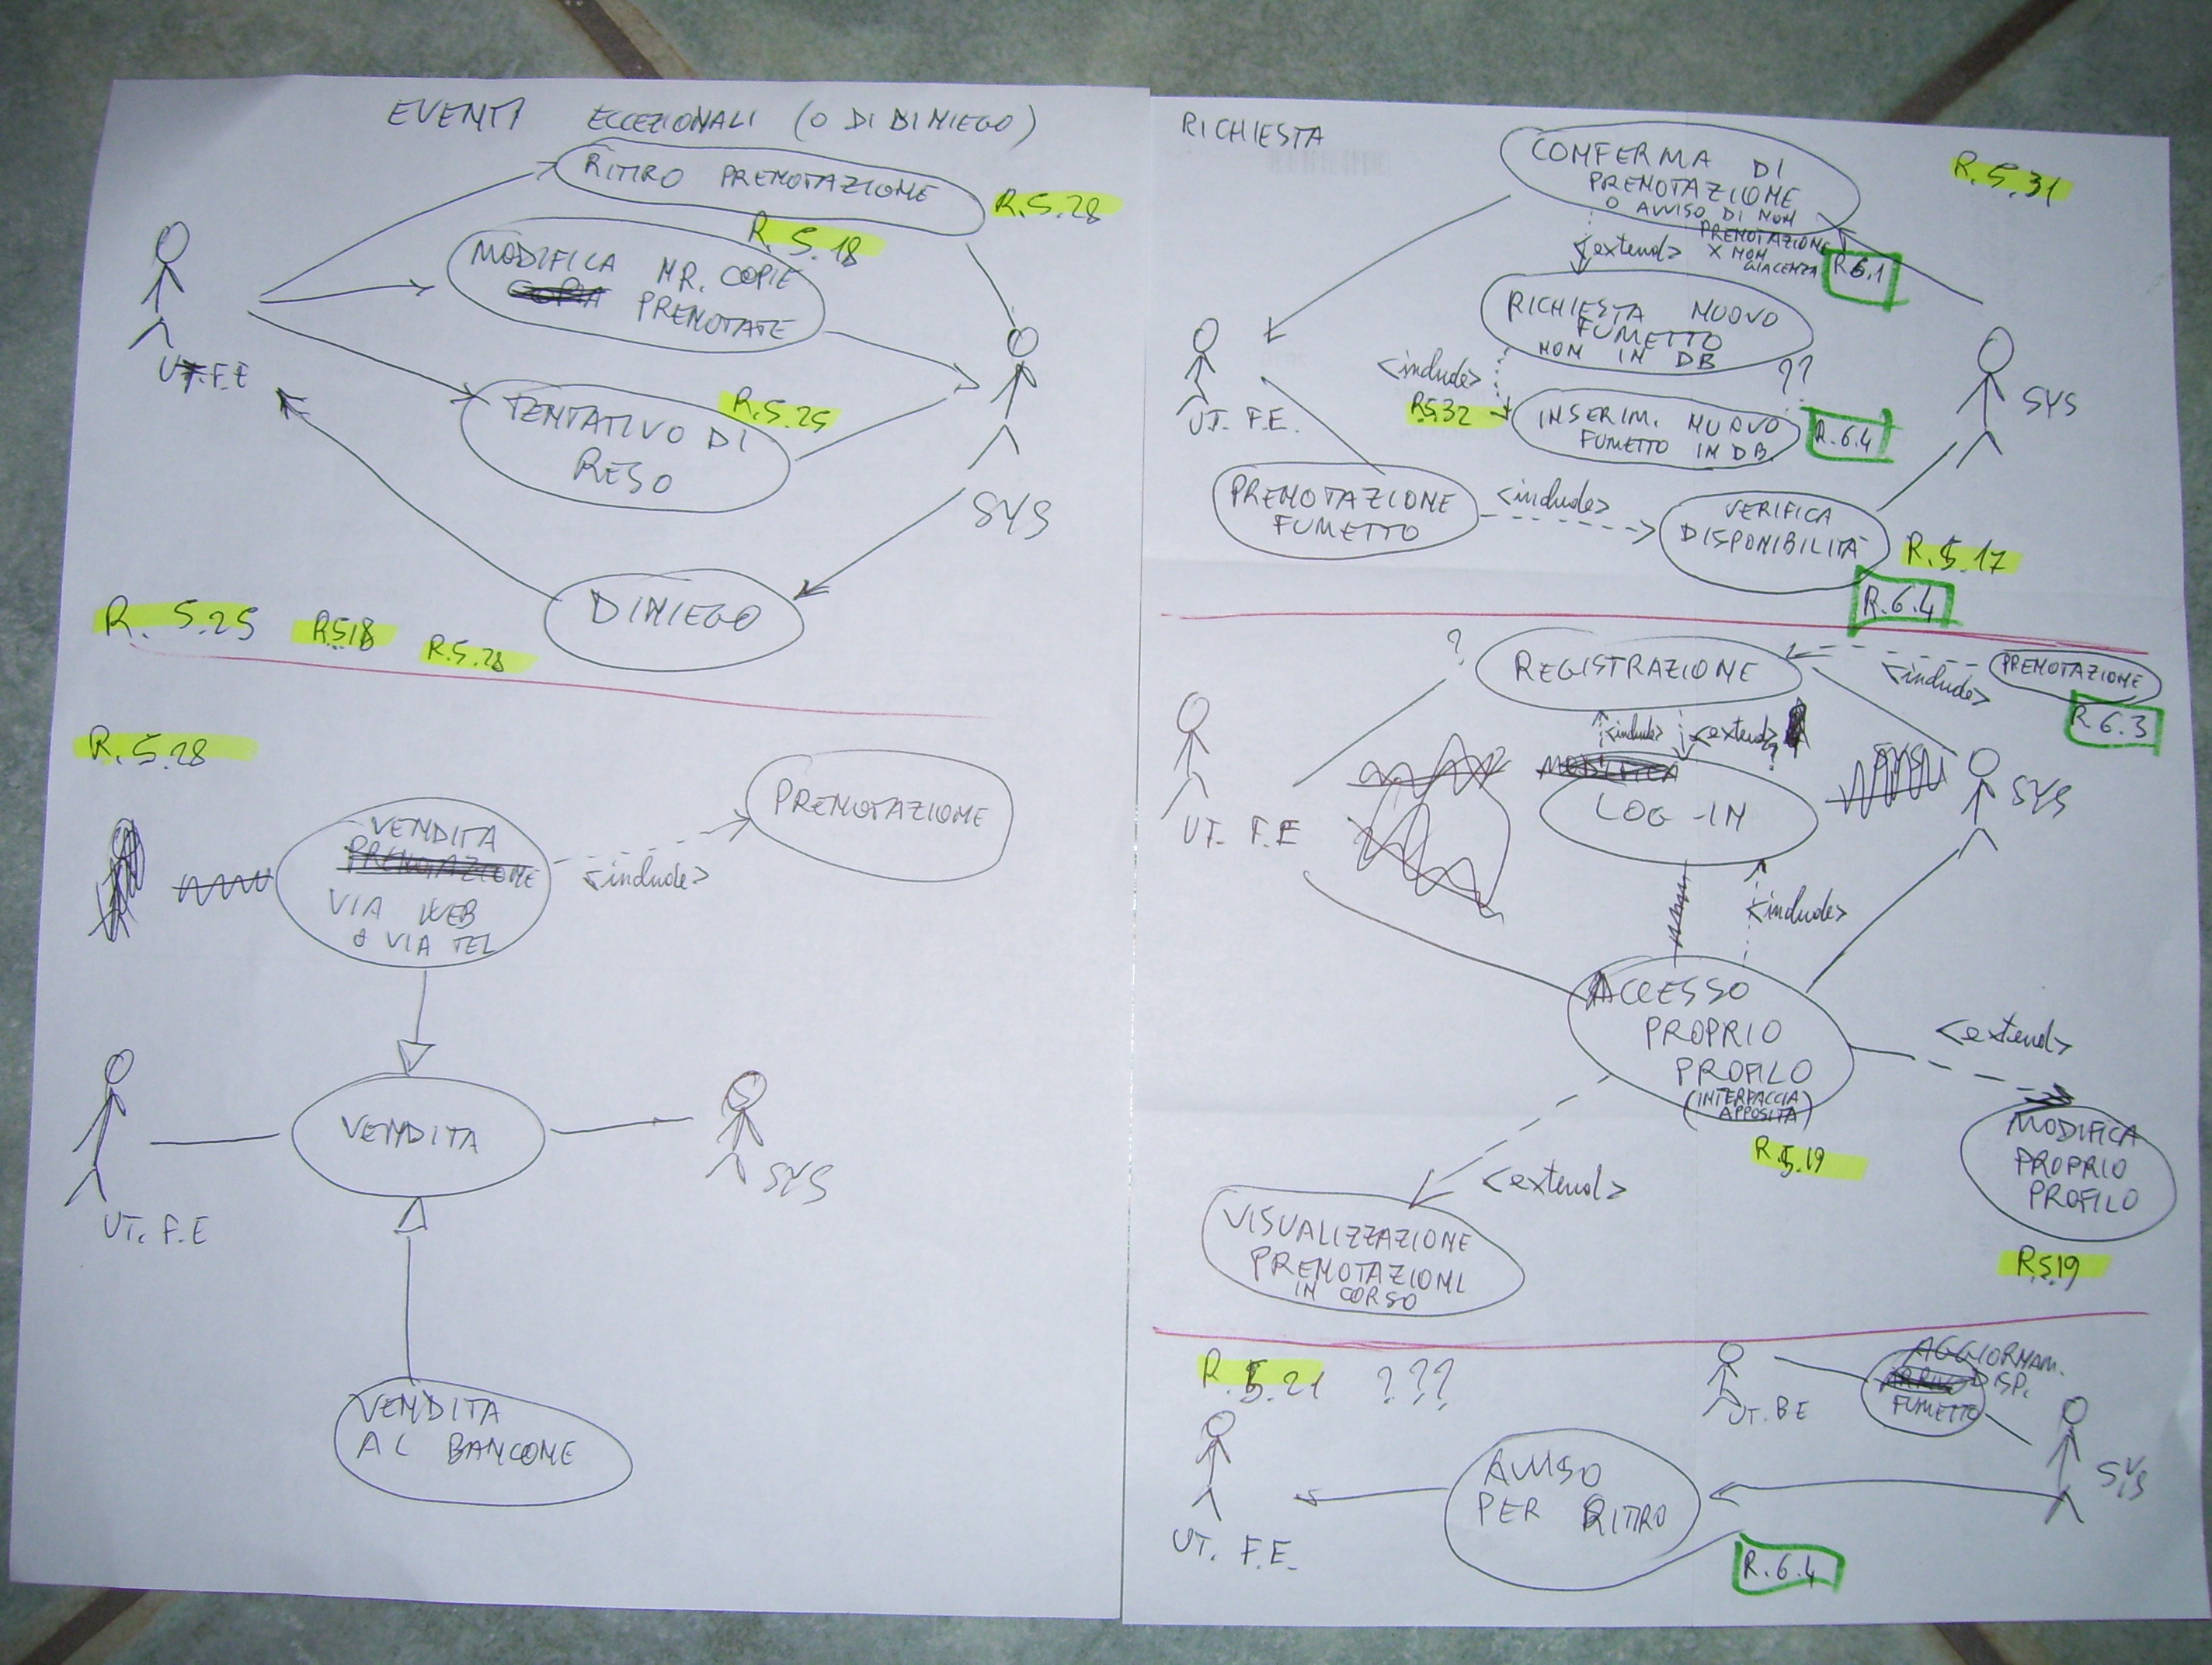 EVENTI ECCEZIONALI (O DI DINIEGO)
RITIRO PRENOTAZIONE
R.5.28
R.5.18
MODIFICA NR. COPIE
PRENOTATE
UT.F.E
R.5.25
TENTATIVO DI
RESO
SYS
DINIEGO
R. 5.25 R5.18 R.5.28
R.5.28
VENDITA
PRENOTAZIONE
VIA WEB
O VIA TEL
<include>
PRENOTAZIONE
VENDITA
SYS
UT. F.E
VENDITA
AL BANCONE
RICHIESTA
CONFERMA DI
PRENOTAZIONE
O AVVISO DI NON
PRENOTAZIONE
X NON
GIACENZA
R.5.31
<extend>
R6.1
RICHIESTA NUOVO
FUMETTO
NON IN DB
??
<include>
R5.32
INSERIM. NUOVO
FUMETTO IN DB.
R.6.4
SYS
UT. F.E.
PRENOTAZIONE
FUMETTO
<include>
VERIFICA
DISPONIBILITÀ
R.5.17
R.6.4
?
REGISTRAZIONE
<include>
PRENOTAZIONE
R.6.3
<include>
<extend>
?
LOG-IN
SYS
UT. F.E
<include>
ACCESSO
PROPRIO
PROFILO
(INTERFACCIA
APPOSITA)
R.5.19
<extend>
MODIFICA
PROPRIO
PROFILO
R5.19
<extend>
VISUALIZZAZIONE
PRENOTAZIONI
IN CORSO
R.5.21 ???
UT. BE
AGGIORNAM.
DISP.
FUMETTO
SYS
AVVISO
PER RITIRO
UT. F.E.
R.6.4